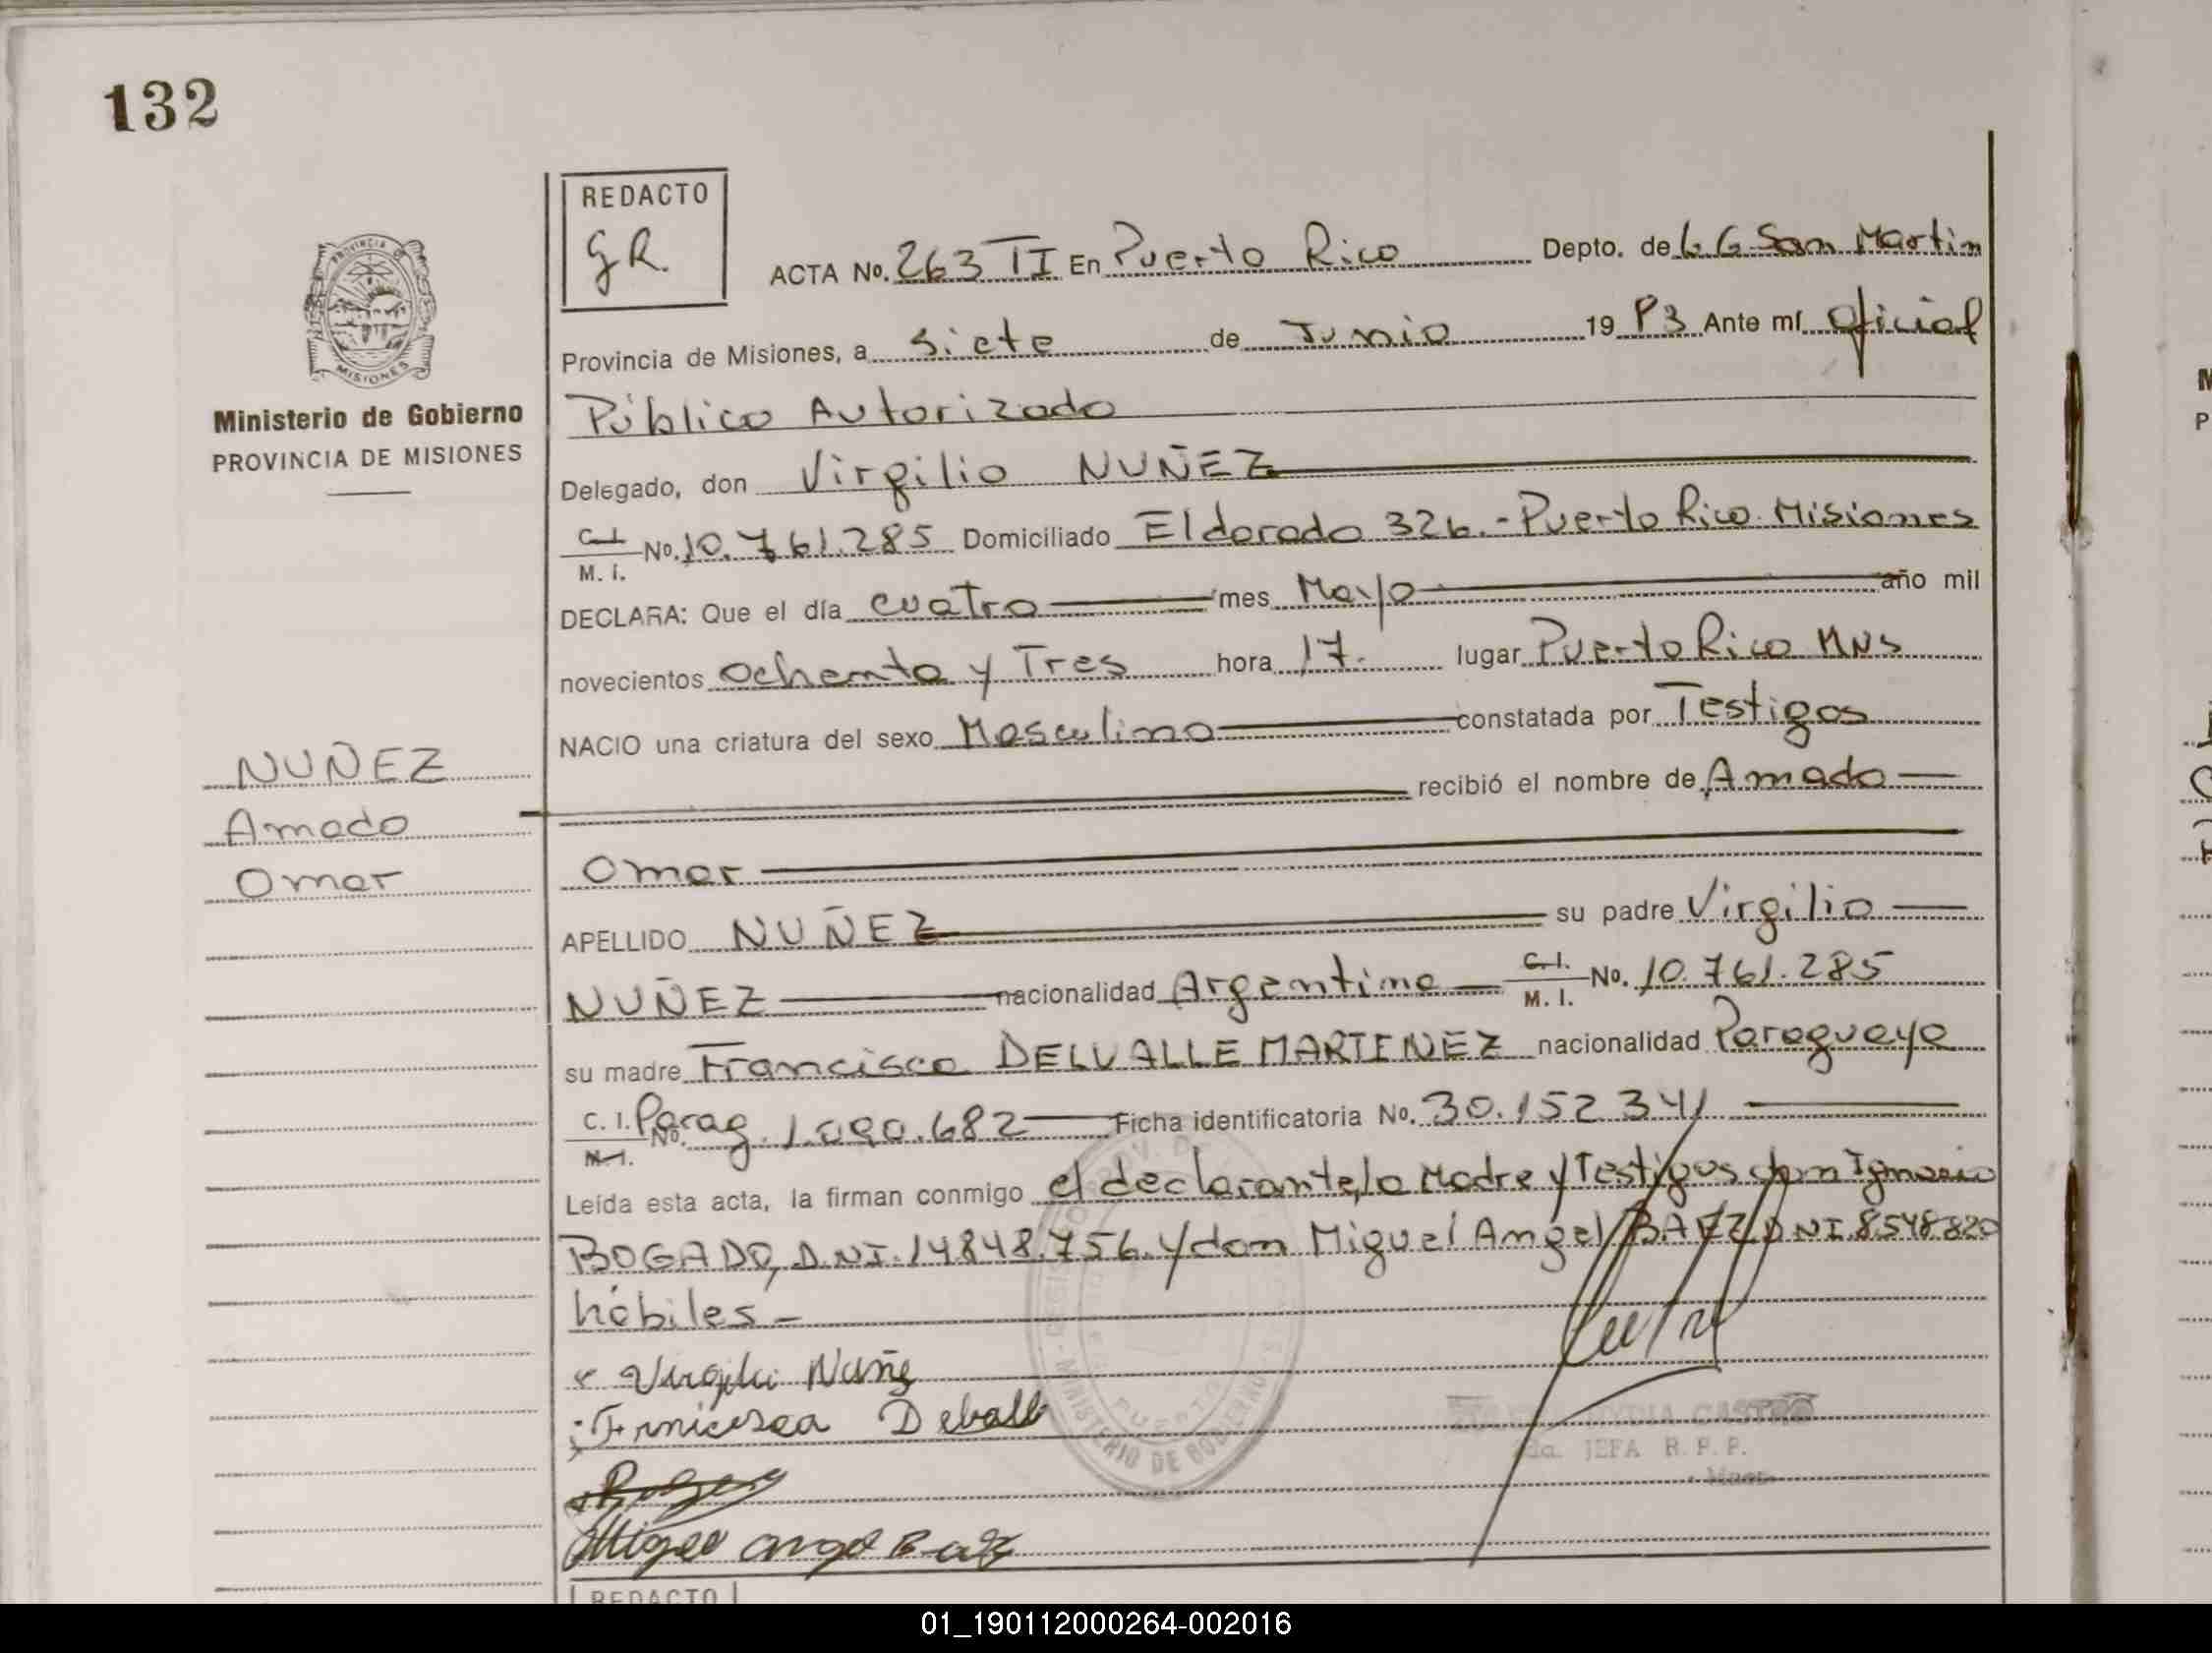 132
REDACTO
GR.
PROVINCIA DE
MISIONES
ACTA No. 263 TI En Puerto Rico Depto. de L G San Martin
Provincia de Misiones, a siete de Junio 19 83 Ante mí Oficial
Ministerio de Gobierno
PROVINCIA DE MISIONES
Público Autorizado
Delegado, don Virgilio NUÑEZ
C.I. M. I. No. 10.761.285 Domiciliado Eldorado 326.- Puerto Rico Misiones
DECLARA: Que el día cuatro mes Mayo año mil
novecientos ochenta y Tres hora 17. lugar Puerto Rico MNS
NACIO una criatura del sexo Masculino constatada por Testigos
recibió el nombre de Amado
Omar
NUÑEZ
Amado
Omar
APELLIDO NUÑEZ su padre Virgilio
NUÑEZ nacionalidad Argentina C.I. M. I. No. 10.761.285
su madre Francisca DELVALLE MARTINEZ nacionalidad Paraguaya
C. I. M.I. No. Parag. 1.090.682 Ficha identificatoria No. 30.152.341
Leída esta acta, la firman conmigo el declarante, la Madre y Testigos don Ignacio
BOGADO, D.NI. 14848.756. y don Miguel Angel BAEZ D NI. 8.548.820
hábiles -
Virgilio Nuñez
Francisca Delvalle
Miguel Angel Baez
MINISTERIO DE GOBIERNO
LYDIA CASTRO
JEFA R. P. P.
REDACTO
01_190112000264-002016